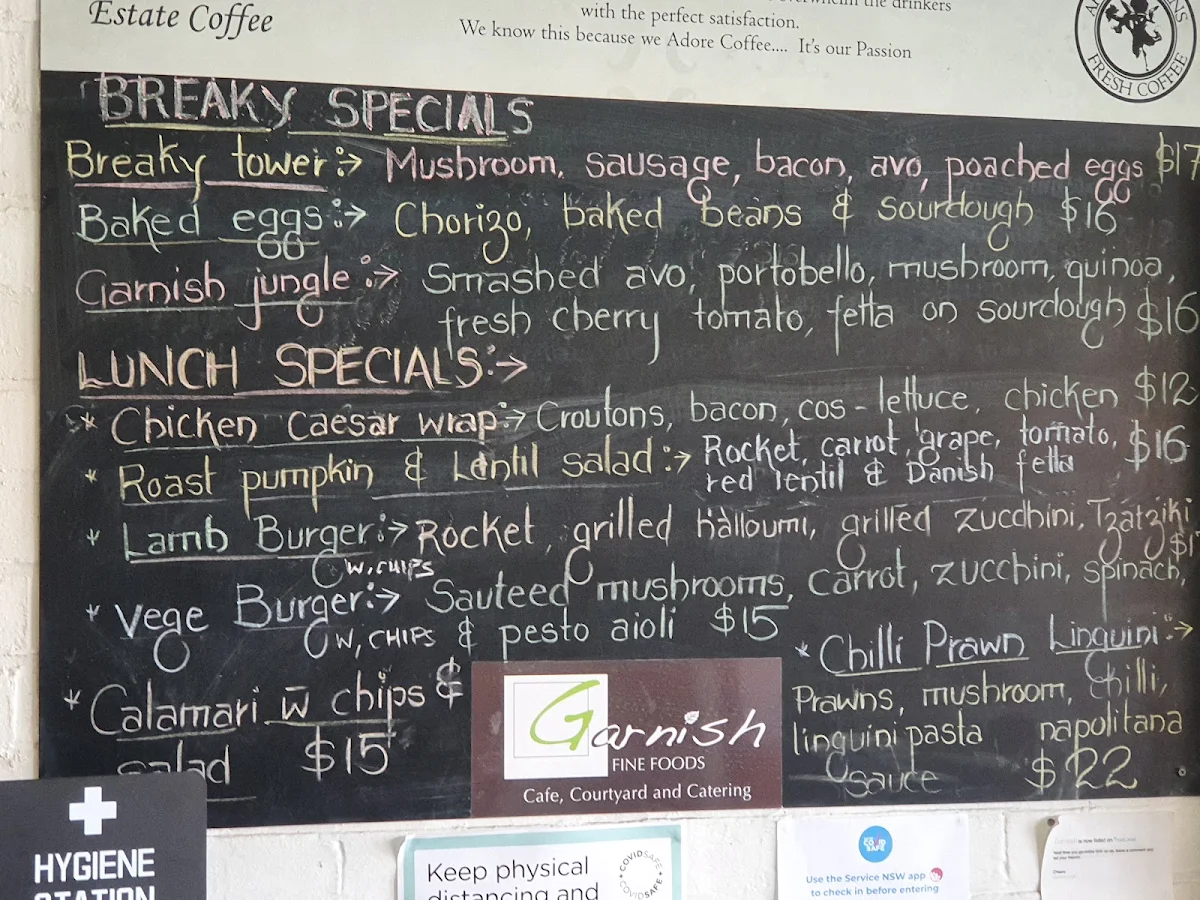 Estate Coffee
the drinkers
with the perfect satisfaction.
We know this because we Adore Coffee.... It's our Passion
FRESH COFFEE
BREAKY SPECIALS
Breaky tower:→ Mushroom, sausage, bacon, avo, poached eggs $17
Baked eggs:→ Chorizo, baked beans & sourdough $16
Garnish jungle:→ Smashed avo, portobello, mushroom, quinoa,
fresh cherry tomato, fetta on sourdough $16
LUNCH SPECIALS:→
* Chicken caesar wrap:→ Croutons, bacon, cos - lettuce, chicken $12
* Roast pumpkin & Lentil salad:→ Rocket, carrot, grape, tomato, $16
red lentil & Danish fetta
* Lamb Burger:→ Rocket, grilled halloumi, grilled zucchini, Tzatziki
W, CHIPS
* Vege Burger:→ Sauteed mushrooms, carrot, zucchini, spinach,
W, CHIPS & pesto aioli $15
* Calamari w chips &
salad $15
* Chilli Prawn Linguini:→
Prawns, mushroom, chilli,
linguini pasta napolitana
sauce $22
Garnish
FINE FOODS
Cafe, Courtyard and Catering
HYGIENE
STATION
Keep physical
distancing and
COVIDSAFE
COVIDSAFE
COVID SAFE
Use the Service NSW app
to check in before entering